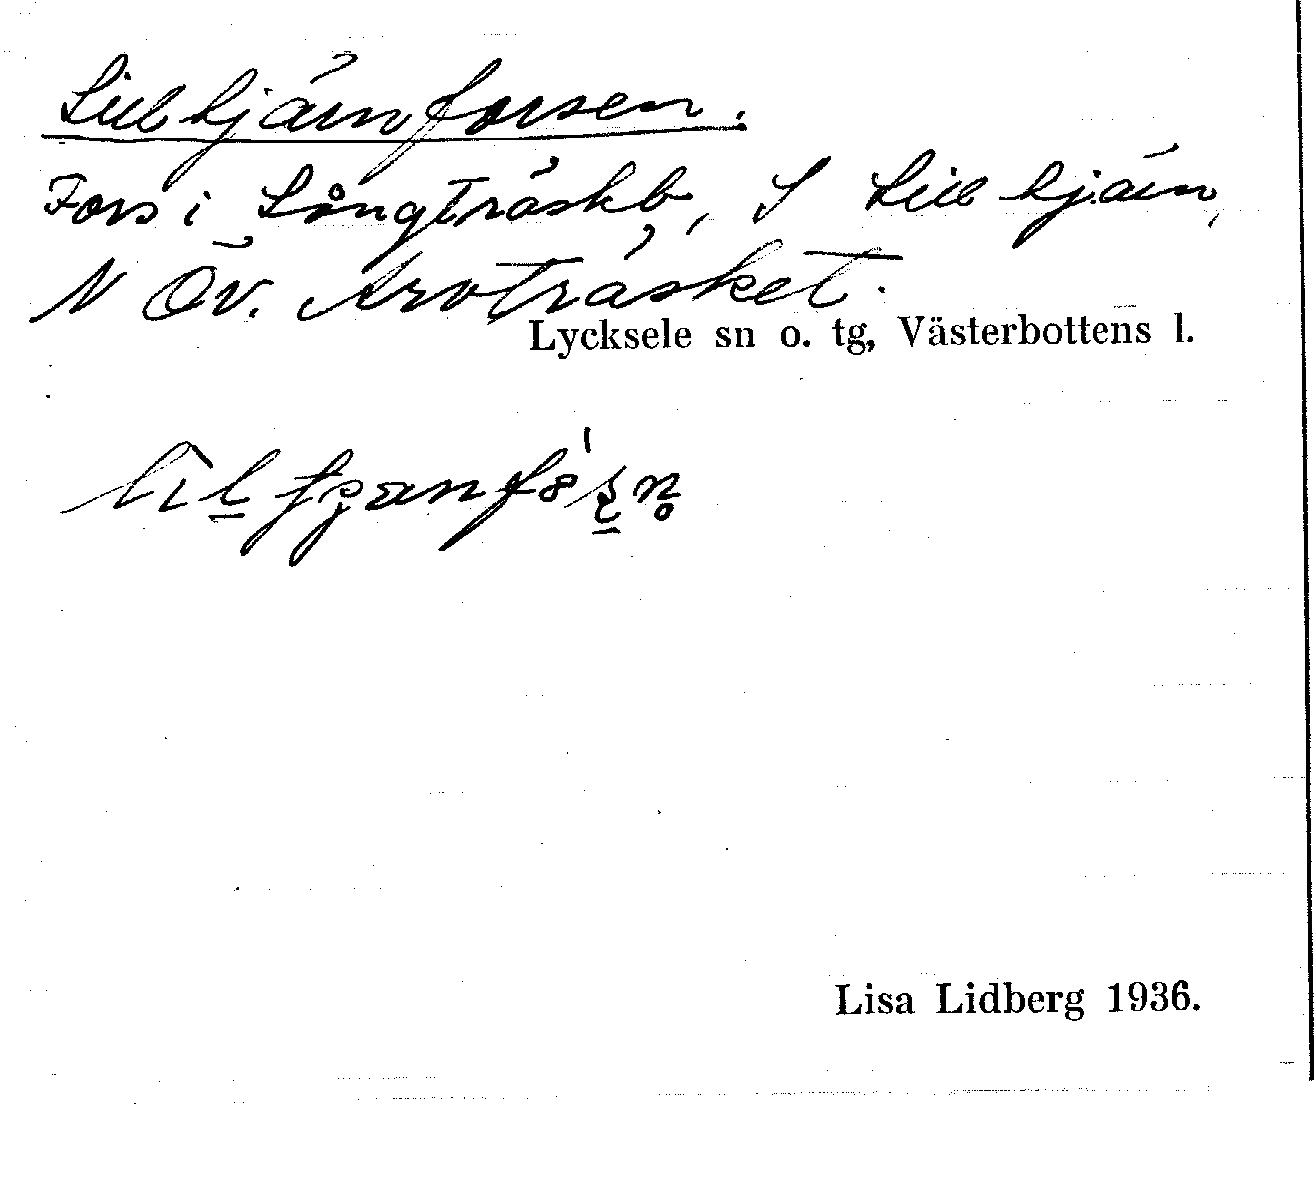 Lillkjärnforsen.
Fors i Långträskb, S Lillkjärn,
N Öv. Arvträsket.
Lycksele sn o. tg, Västerbottens l.
Lisa Lidberg 1936.